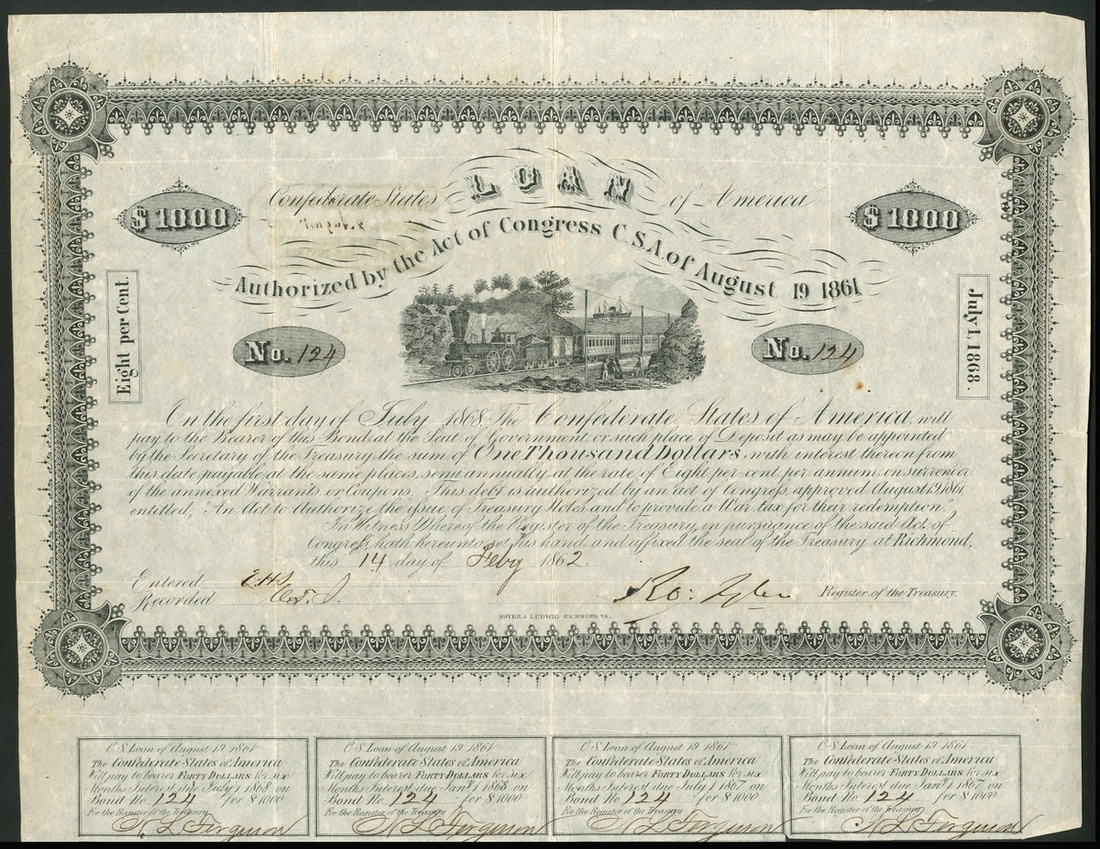 LOAN
Confederate States of America
$1000
$1000
Authorized by the Act of Congress C.S.A. of August 19 1861
Eight per Cent.
July 1, 1868.
No. 124
No. 124
On the first day of July 1868 The Confederate States of America, will
pay to the Bearer of this Bond, at the Seat of Government, or such place of Deposit as may be appointed
by the Secretary of the Treasury, the sum of One Thousand Dollars, with interest thereon from
this date, payable at the same places, semi annually, at the rate of Eight per cent, per annum, on surrender
of the annexed Warrants, or Coupons. This debt is authorized by an act of Congress, approved August 19, 1861,
entitled, An Act to Authorize the issue of Treasury Notes, and to provide a War tax for their redemption.
In Witness Whereof the Register of the Treasury, in pursuance of the said Act, of
Congress, hath hereunto set his hand, and affixed the seal of the Treasury at Richmond,
this 14 day of Feby 1862.
Entered
Recorded
Ro: Tyler Register of the Treasury.
HOYER & LUDWIG RICHMOND VA.
C.S. Loan of August 19 1861
The Confederate States of America
Will pay to bearer FORTY DOLLARS for six
Months Interest due July 1 1868 on
Bond No 124 for $1000
For the Register of the Treasury
N. L. Ferguson
C.S. Loan of August 19 1861
The Confederate States of America
Will pay to bearer FORTY DOLLARS for six
Months Interest due Jany 1 1868 on
Bond No 124 for $1000
For the Register of the Treasury
N L Ferguson
C.S. Loan of August 19 1861
The Confederate States of America
Will pay to bearer FORTY DOLLARS for six
Months Interest due July 1 1867 on
Bond No 124 for $1000
For the Register of the Treasury
N L Ferguson
C.S. Loan of August 19 1861
The Confederate States of America
Will pay to bearer FORTY DOLLARS for six
Months Interest due Jany 1 1867 on
Bond No 124 for $1000
For the Register of the Treasury
N L Ferguson